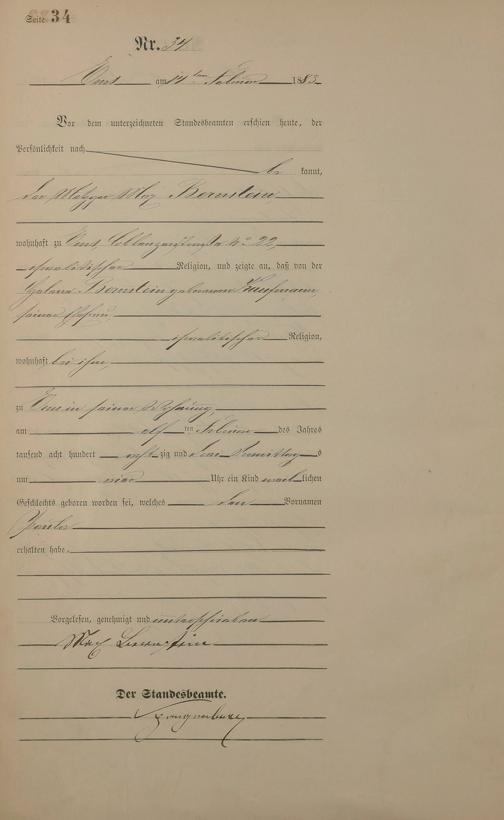 Seite 34
Nr. 34
Ems am 14ten Februar 1883
Vor dem unterzeichneten Standesbeamten erschien heute, der
Persönlichkeit nach
be kannt,
der Metzger Max Bernstein
wohnhaft zu Ems, Coblenzerstraße No 22,
israelitischer Religion, und zeigte an, daß von der
Helena Bernstein geborenen Kaufmann,
seiner Ehefrau
israelitischer Religion,
wohnhaft bei ihm,
zu Ems in seiner Wohnung,
am elften Februar des Jahres
tausend acht hundert acht zig und drei Vormittags
um vier Uhr ein Kind männlichen
Geschlechts geboren worden sei, welches den Vornamen
erhalten habe.
Vorgelesen, genehmigt und unterschrieben
Max Bernstein
Der Standesbeamte.